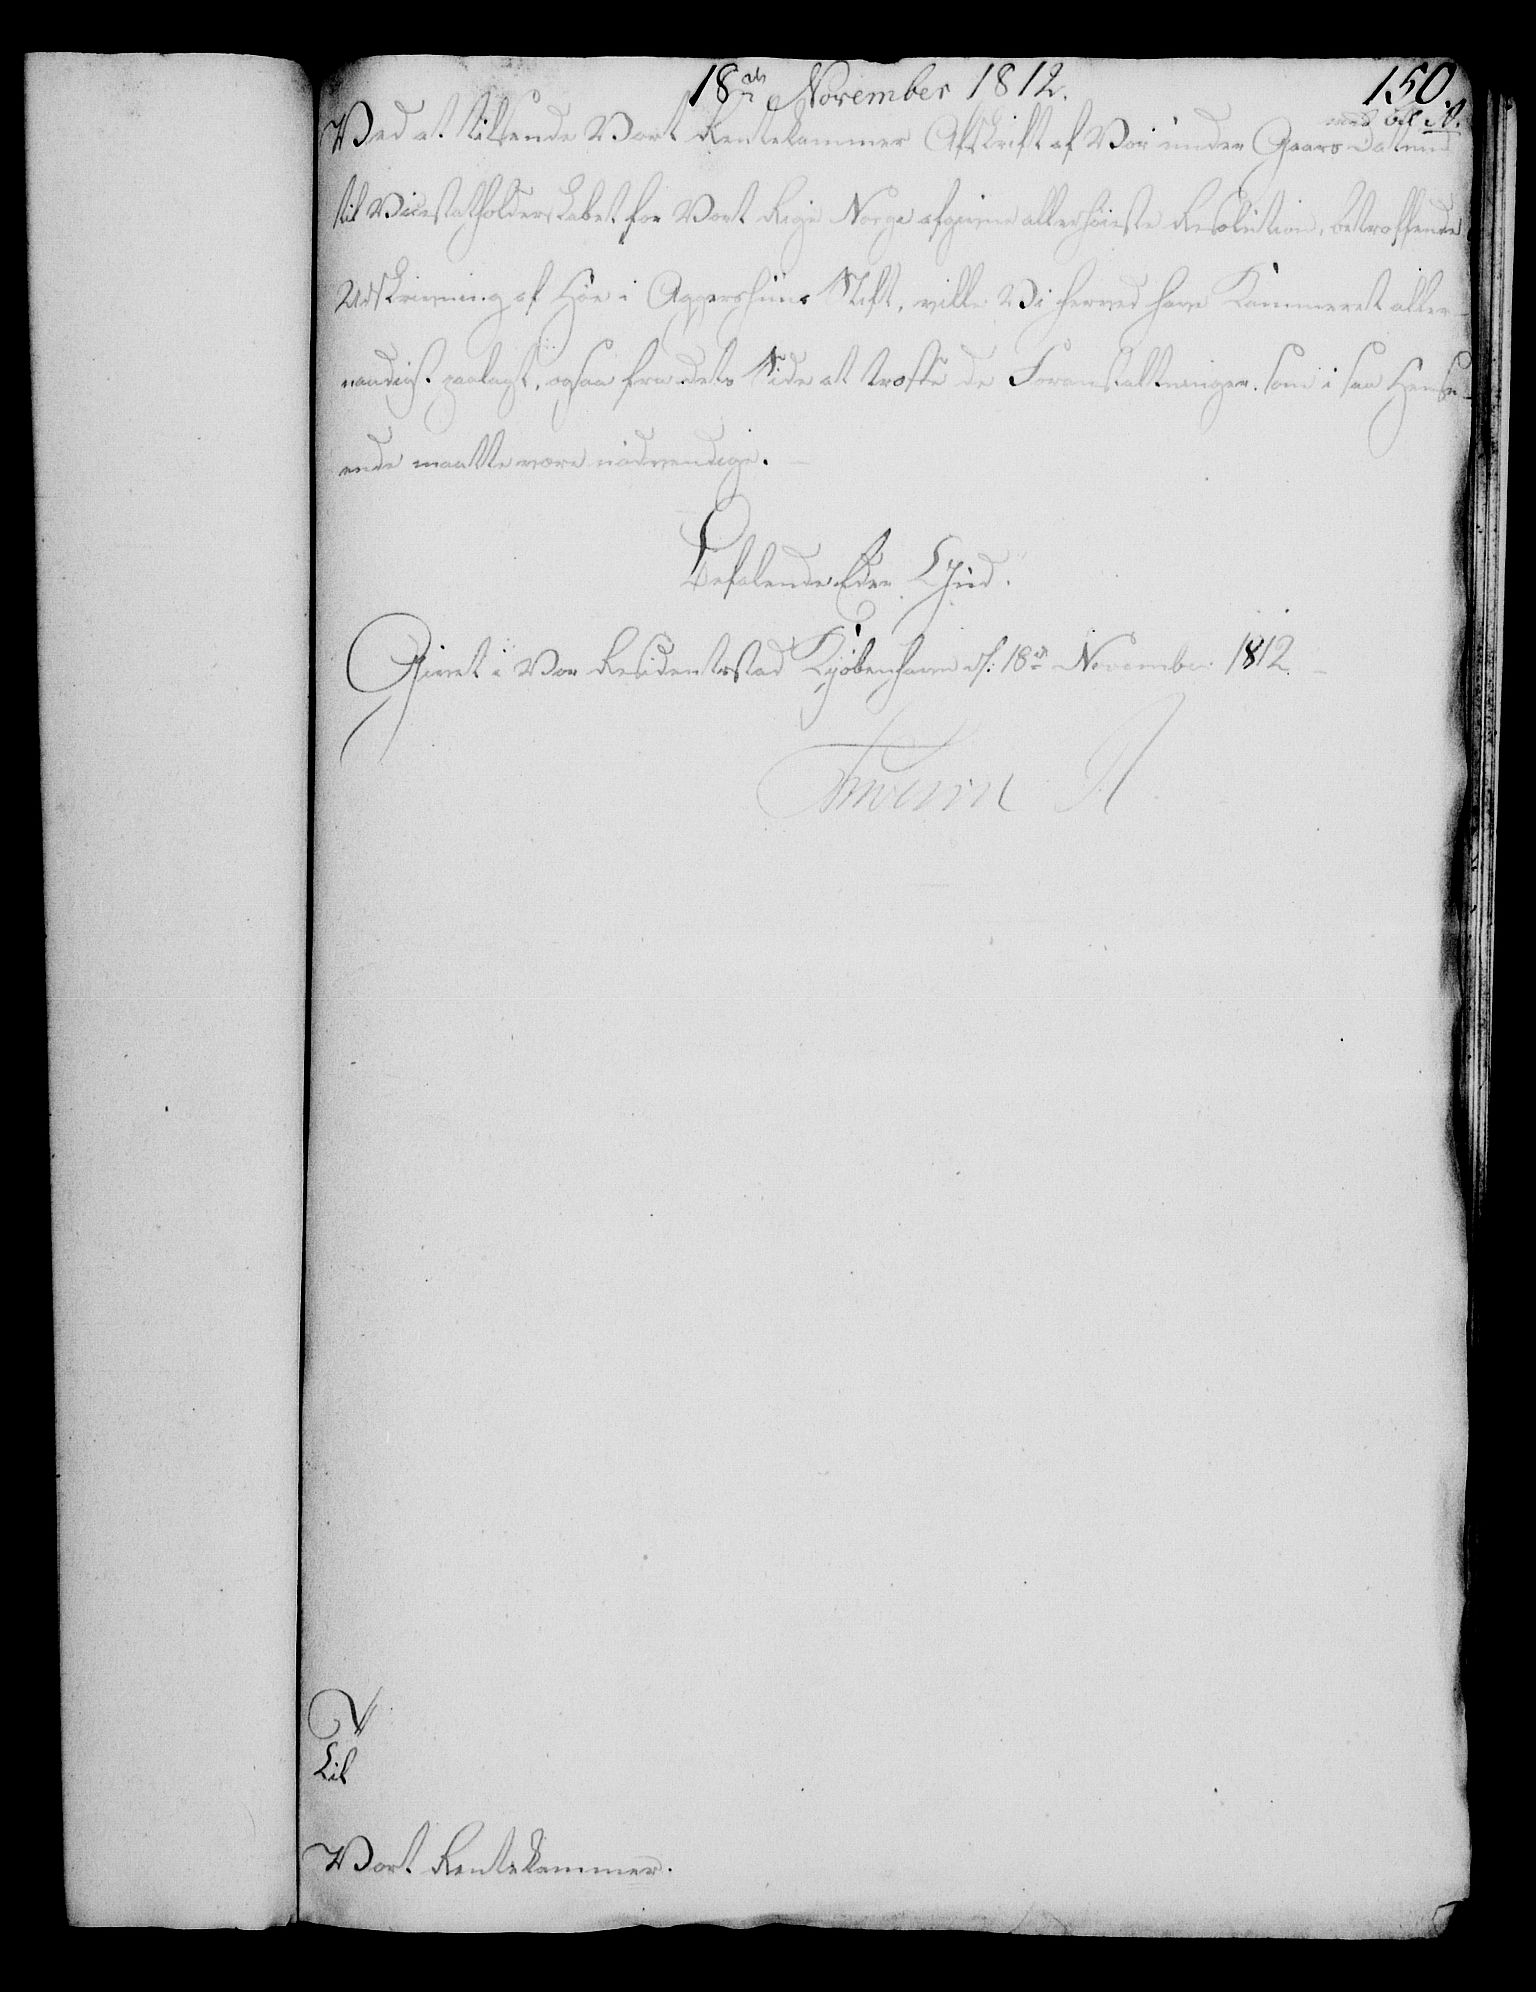 18de November 1812.
150.
med bil A.
Ved at tilsende Vort Rentekammer Afskrift af Vor under Gaars Datum
til Vicestatholderskabet for Vort Rige Norge afgivne allerhøieste Resolution, betreffende
Udskrivning af Høe i Aggershuus Stift, ville Vi herved have Kammeret aller-
naadigst paalagt, ogsaa fra dets Side at træffe de Foranstaltninger, som i saa Hense-
ende maatte være nødvendige.
Befalende Eder Gud.
Givet i Vor Residentsstad Kjøbenhavn d: 18de November 1812.
Frederik R
Til
Vort Rentekammer.